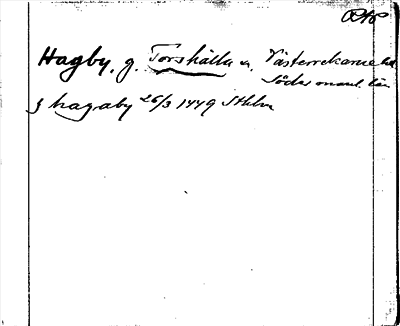 Hagby, g. Torshälla s. Västerrekarne hd
Söderman. län
j hagaby 26/3 1449 Sthlm